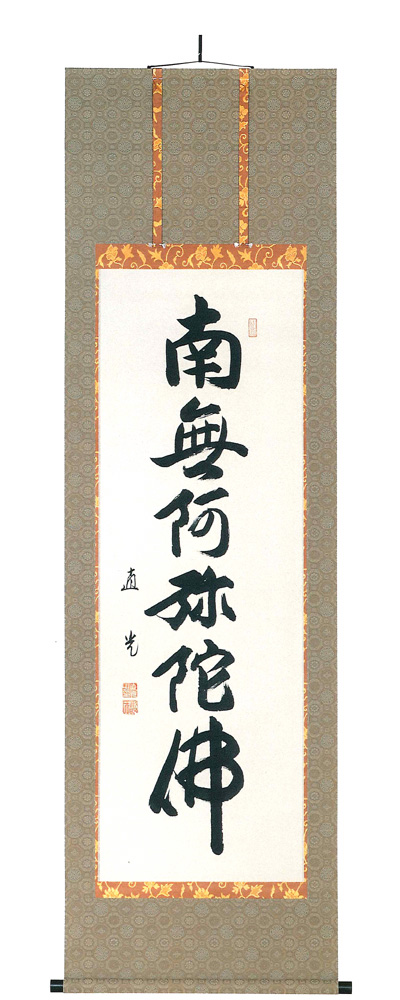 南無阿弥陀佛
直光